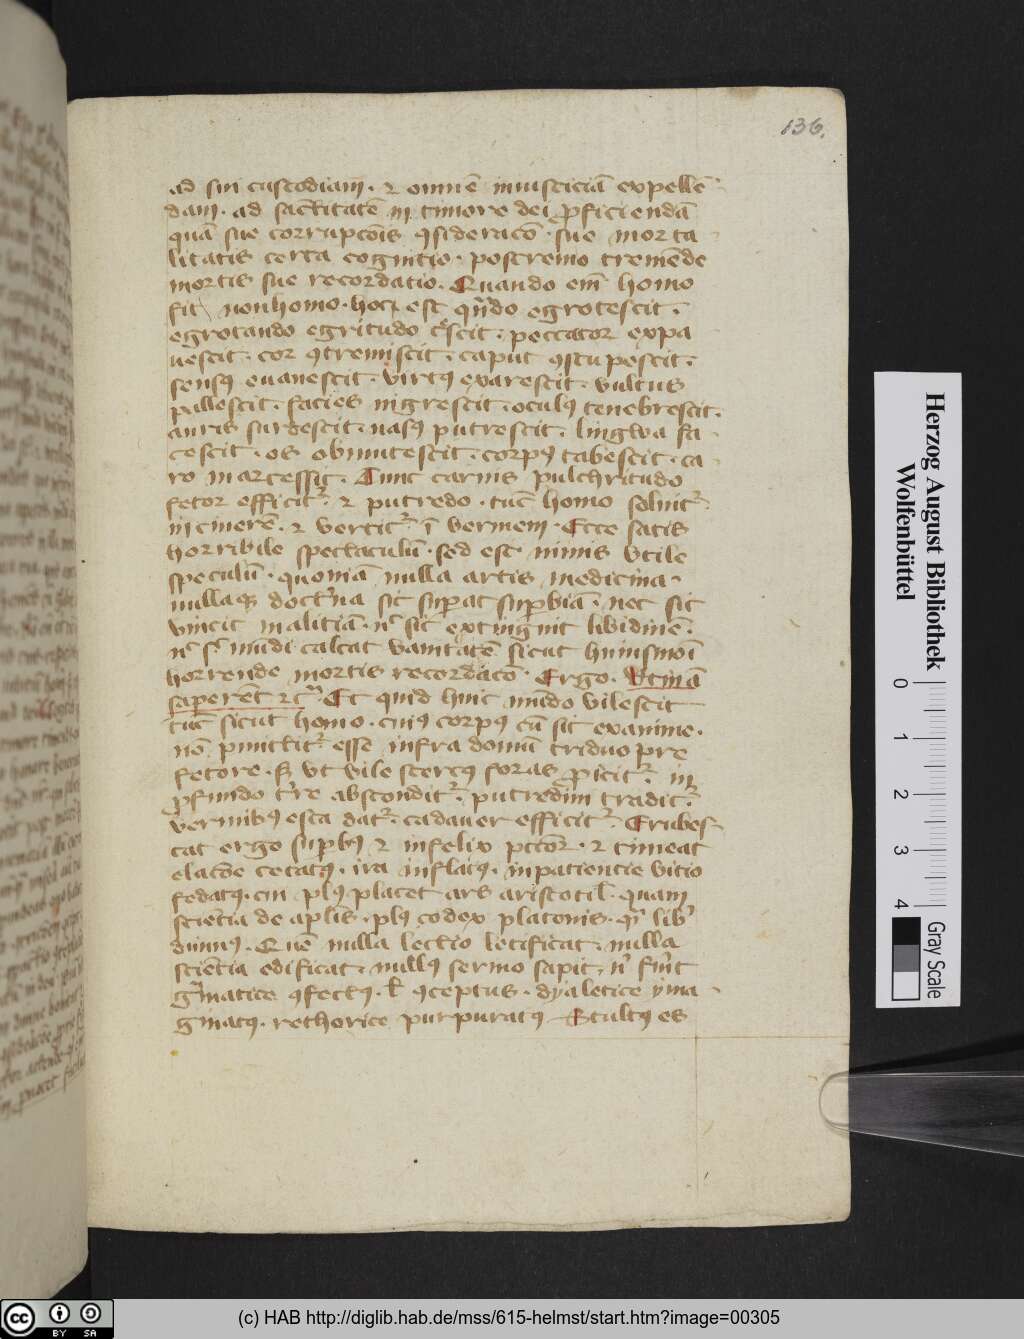 136.
ad sui custodiam · ⁊ omnē iniusticiā expellē
dam · ad sāctitatē in timore dei ꝓficiendā
quā sue corrupcōis ꝯsideracō · sue morta
litatis certa cognitio · postremo tremēde
mortis sue recordatio · Quando em̄ homo
fit nonhomo · hoc est qn̄do egrotescit ·
egrotando egritudo cͤscit · peccator expa
uescit · cor ꝯtremiscit · caput ꝯstupescit ·
sensꝰ euanescit · virtꝰ exarescit · vultus
pallescit · facies nigrescit · oculꝰ tenebrescit ·
auris surdescit · nasꝰ putrescit · lingwa fa
tescit · os obmutescit · corpꝰ tabescit · ca
ro marcessit · Tunc carnis pulchritudo
fetor efficit᷑ · ⁊ putredo · tūc homo soluit᷑
in cinerē · ⁊ vertit᷑ ī vermem · Ecce satis
horribile spectaculū · sed est nimis vtile
speculū · quoniā nulla artis medicina ·
nullaqꝫ doctͥna sic suꝑat suꝑbiā · nec sic
vincit malitiā · nͨ sic extingwit libidinē ·
nͨ sͨ mūdi calcat vanitatē sicut huiusmōi
horrende mortis recordacō · Ergo · Vtinā
saperēt ⁊cͣ · Et quid huic mūdo vilescit
tūc sicut homo · cuiꝰ corpꝰ cū sit exanime ·
nō pmittit᷑ esse infra domū triduo pre
fetore · sꝫ vt vile stercꝰ foras ꝓicit᷑ · in
ꝓfundo tͤre abscondit᷑ · putredini tradit᷑ ·
vermibꝰ esca dat᷑ · cadauer efficit᷑ · Erubes
cat ergo suꝑbꝰ ⁊ infelix pctōr · ⁊ timeat
elacōe cecatꝰ · ira inflatꝰ · inpatientie vitio
fedatꝰ · cui plꝰ placet ars aristotil̄ · quam
sciētia de aplīs · plꝰ codex platonis · qͣ libͤ
diuinꝰ · Quē nulla lectio letificat · nulla
sciētia edificat · nullꝰ sermo sapit ·
gͣmatice ꝯfectꝰ · ł ꝯceptus · dyaletice yma
ginatꝰ · rethorice purpuratꝰ Stultꝰ es
Herzog August Bibliothek
Wolfenbüttel
0 1 2 3 4
Gray Scale
(c) HAB http://diglib.hab.de/mss/615-helmst/start.htm?image=00305
cc BY SA